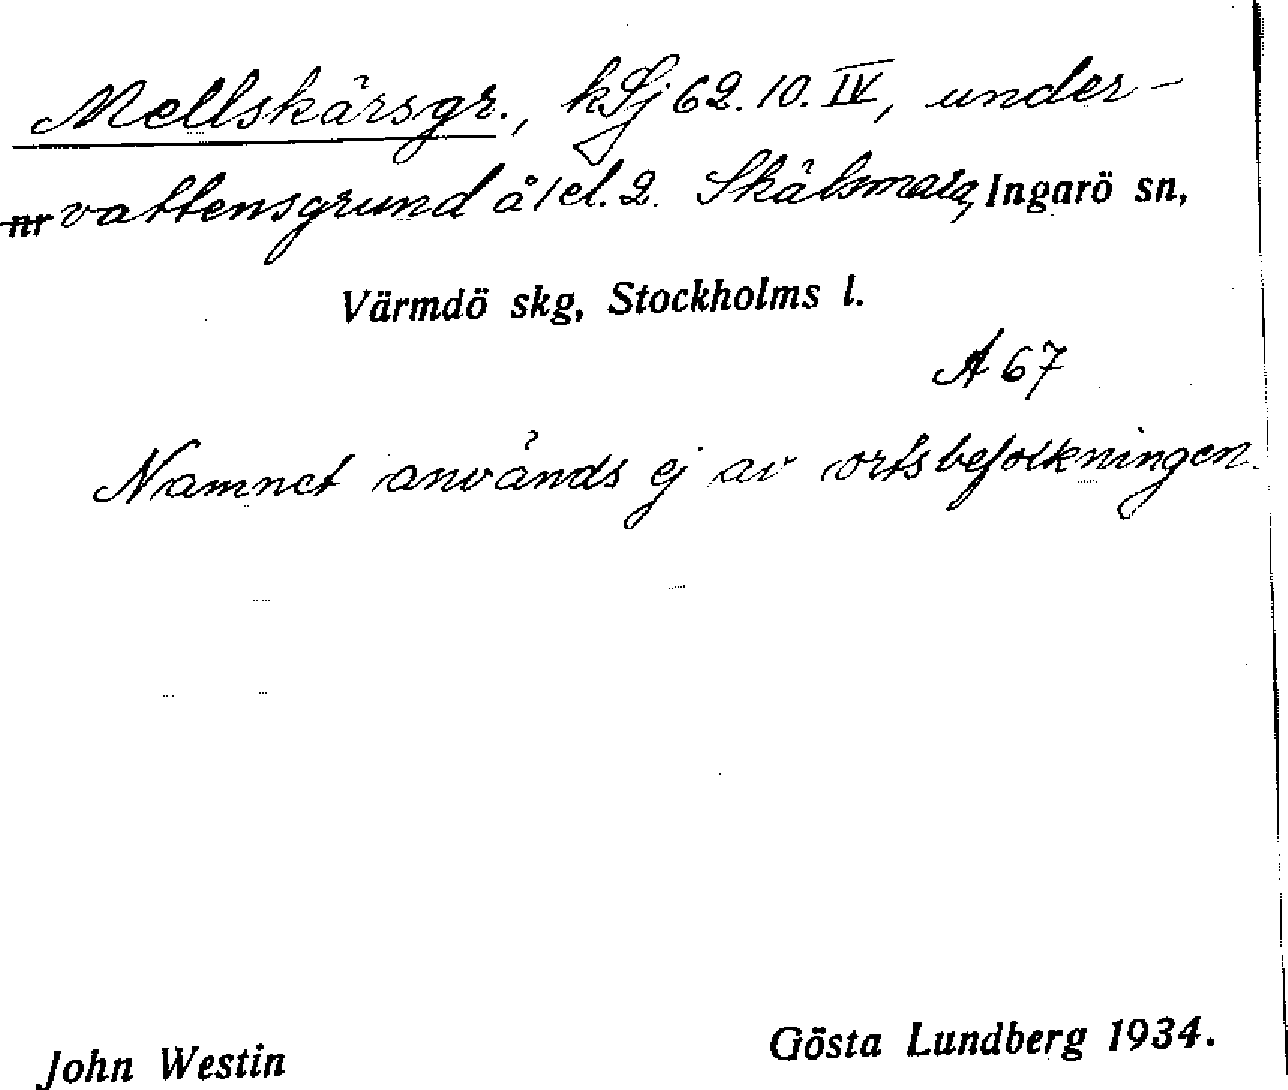 Mellskärsgr., kSj 62.10.IV, under-
nr vattensgrund å 1 el. 2. Skälsmara, Ingarö sn,
Värmdö skg, Stockholms l.
A 67
Namnet används ej av ortsbefolkningen.
John Westin
Gösta Lundberg 1934.